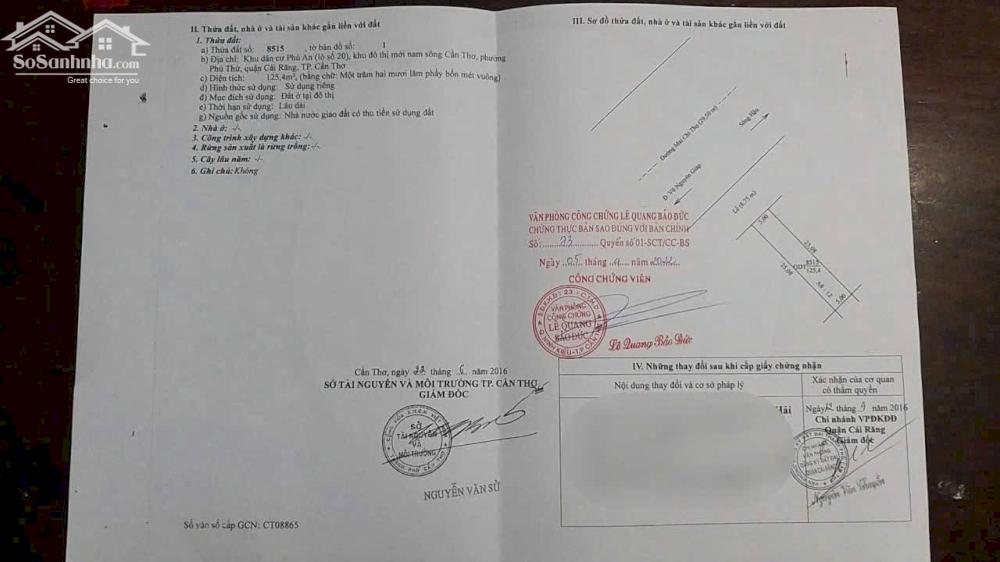 SoSanhnha.com
Great choice for you
II. Thửa đất, nhà ở và tài sản khác gắn liền với đất
1. Thửa đất:
a) Thửa đất số: 8515, tờ bản đồ số: 1
b) Địa chỉ: Khu dân cư Phú An (lô số 20), khu đô thị mới nam sông Cần Thơ, phường
Phú Thứ, quận Cái Răng, TP. Cần Thơ
c) Diện tích: 125,4m², (bằng chữ: Một trăm hai mươi lăm phẩy bốn mét vuông)
d) Hình thức sử dụng: Sử dụng riêng
đ) Mục đích sử dụng: Đất ở tại đô thị
e) Thời hạn sử dụng: Lâu dài
g) Nguồn gốc sử dụng: Nhà nước giao đất có thu tiền sử dụng đất
2. Nhà ở: -/-
3. Công trình xây dựng khác: -/-
4. Rừng sản xuất là rừng trồng: -/-
5. Cây lâu năm: -/-
6. Ghi chú: Không
Cần Thơ, ngày 23 tháng 6 2016
SỞ TÀI NGUYÊN VÀ MÔI TRƯỜNG TP. CẦN THƠ
GIÁM ĐỐC
SỞ
TÀI NGUYÊN
VÀ
MÔI TRƯỜNG
NGUYỄN VĂN SỬ
Số vào sổ cấp GCN: CT08865
III. Sơ đồ thửa đất, nhà ở và tài sản khác gắn liền với đất
Đường Mai Chí Thọ (29,50 m)
Sông Hậu
Đ. Võ Nguyên Giáp
Lề (8,75 m)
5.00
25.08
8515
ODT
125,4
25.08
A8 - 12
5.00
VĂN PHÒNG CÔNG CHỨNG LÊ QUANG BẢO ĐỨC
CHỨNG THỰC BẢN SAO ĐÚNG VỚI BẢN CHÍNH
Số: 73 Quyển số 01-SCT/CC-BS
Ngày 05 tháng năm
CÔNG CHỨNG VIÊN
VĂN PHÒNG
CÔNG CHỨNG
LÊ QUANG
BẢO ĐỨC
Lê Quang Bảo Đức
IV. Những thay đổi sau khi cấp giấy chứng nhận
Nội dung thay đổi và cơ sở pháp lý
Xác nhận của cơ quan
có thẩm quyền
Hải
Ngày 12 tháng 9 năm 2016
Chi nhánh VPĐKĐĐ
Quận Cái Răng
Giám đốc
CHI NHÁNH
VĂN PHÒNG
ĐĂNG KÝ ĐẤT ĐAI
QUẬN CÁI RĂNG